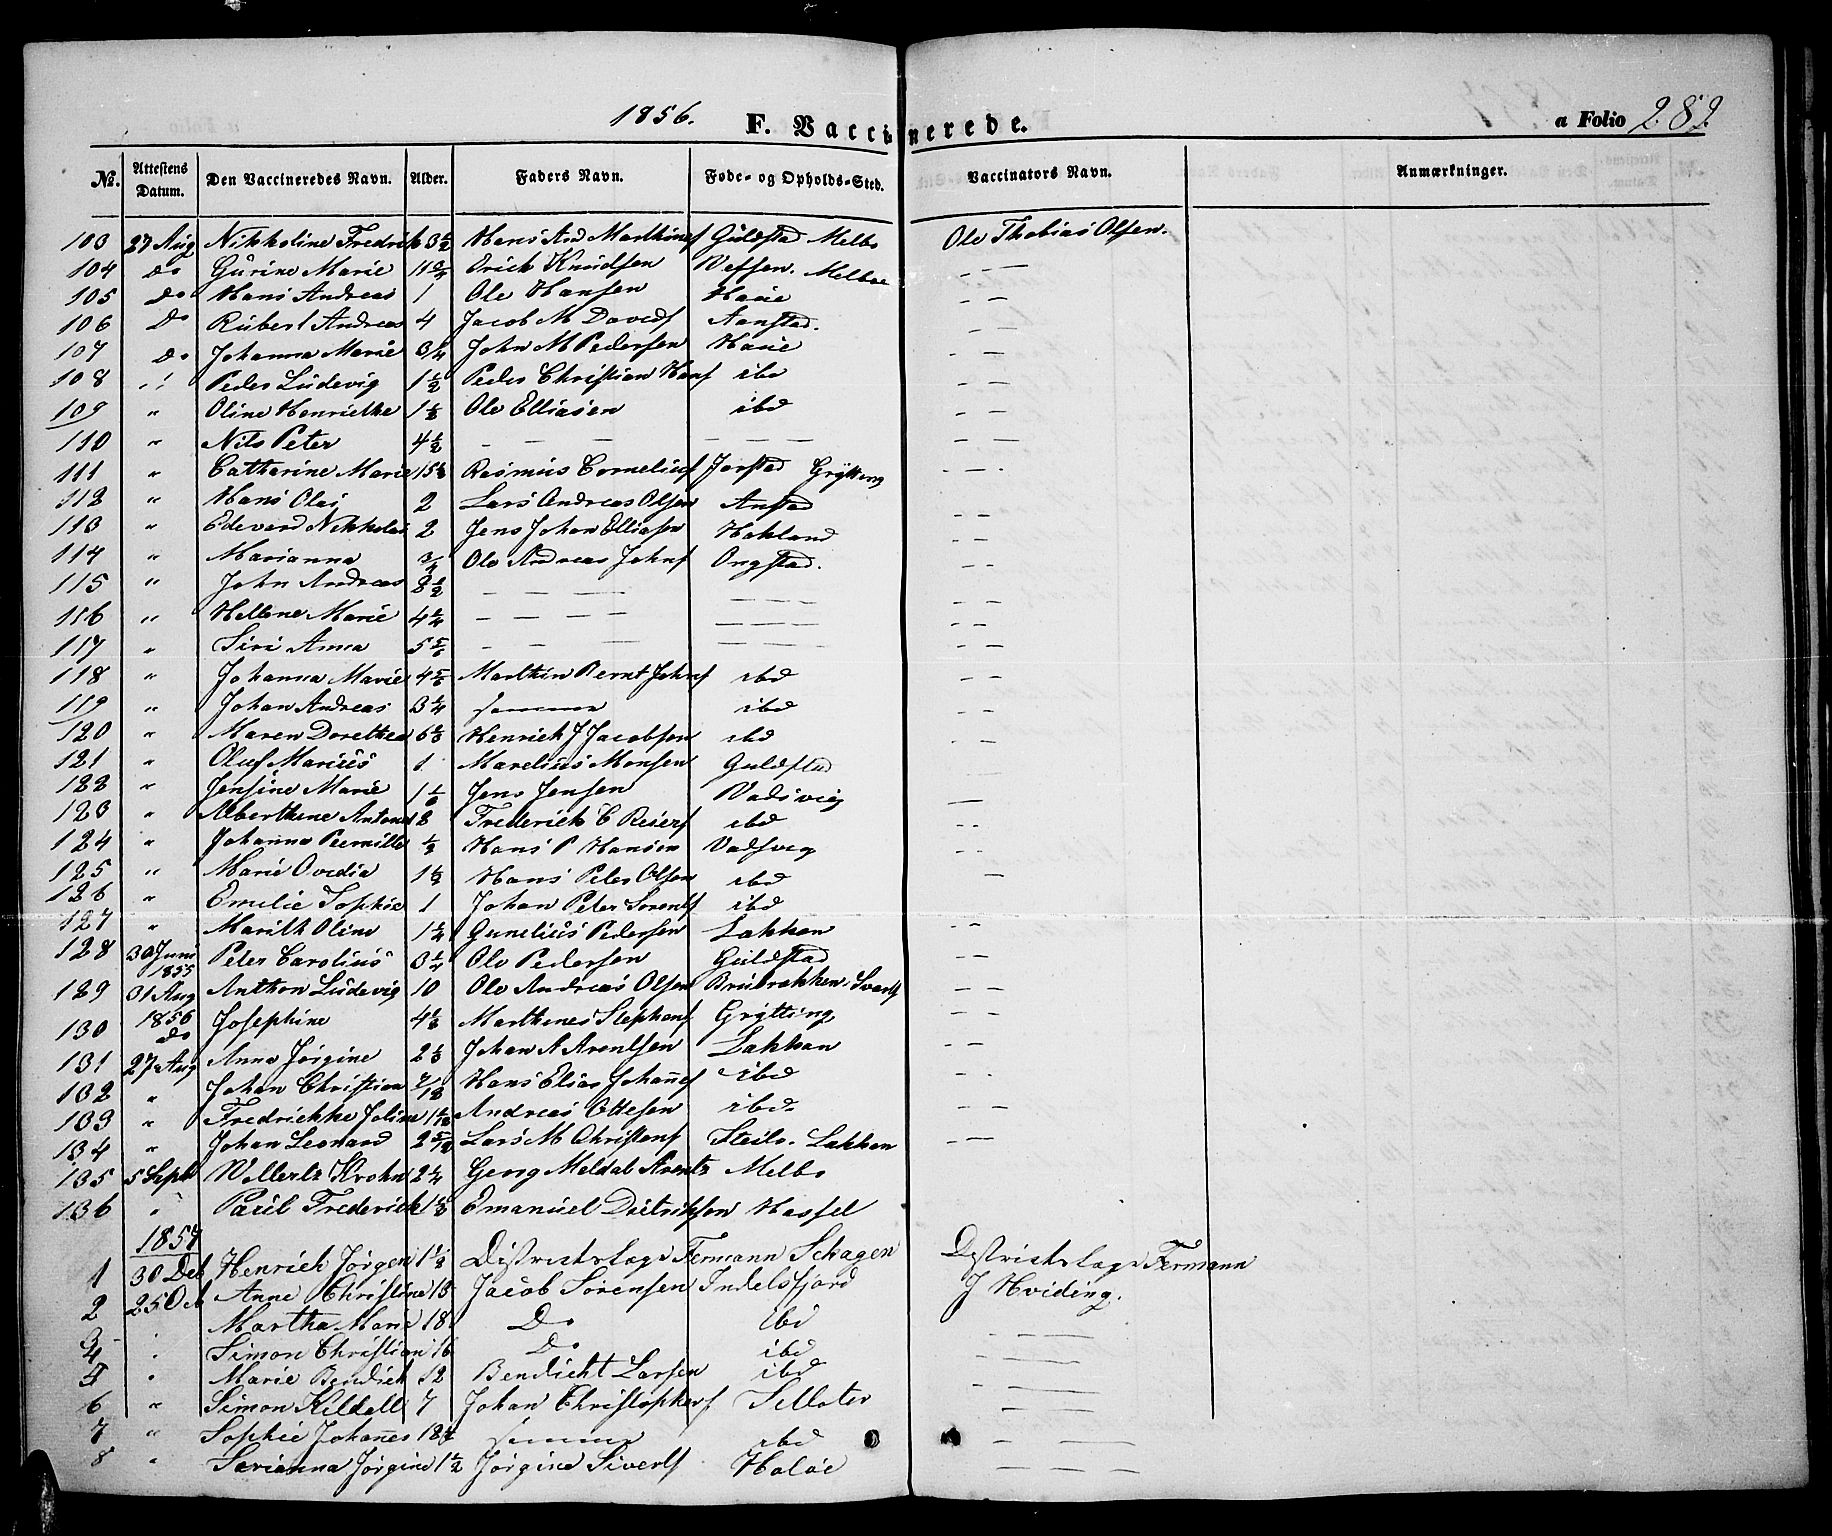 1856. F. Vaccinerede. a Folio 282.
No. Attestens Datum. Den Vaccineredes Navn. Alder. Faders Navn. Føde- og Opholds-Sted. Vaccinators Navn. Anmærkninger.
103 27 Aug Nikkoline Fredrik 3 1/2 Hans And Marthinsf Guldstad Melbo Ole Thobias Olsen.
104 Do Gurine Marie 11 Orich Knudsen Vefsen. Melboe — —
105 Do Hans Andreas 1 Ole Hansen Haue — —
106 Do Rubert Andreas 4 Jacob M Davids Aanstad. — —
107 Do Johanna Marie 3/4 John M Pedersen Haue — —
108 " Peder Ludevig 1 1/2 Peder Christian Hansf ibd — —
109 " Oline Henriethe 1 1/2 Ole Elliasen ibd — —
110 " Nils Peter 4 1/2 — — — — — — — — —
111 " Catharine Marie 15 Rasmus Corneliusf Jorstad Grytting — —
112 " Hans Olai 2 Lars Andreas Olsen Anstad — —
113 " Edevard Nikkolai 2 Jens Johan Elliasen Hokland — —
114 " Marianna 3/4 Ole Andreas Johnsf Ongstad. — —
115 " John Andreas 8 1/2 — — — — — — — — —
116 " Hellene Marie 4 1/4 — — — — — — — — —
117 " Siri Anna 5 5/6 — — — — — — — — —
118 " Johanna Marie 4 5/6 Marthin Bernt Johnsf ibd — —
119 " Johan Andreas 3 1/4 samme ibd — —
120 " Maren Dorethea 6 1/3 Henrich J Jacobsen ibd — —
121 " Oluf Marius 1 Marelius Monsen Guldstad — —
122 " Jensine Marie 1 1/6 Jens Jensen Vadsvig —
123 " Alberthine Antone 2 Frederich C Reiersf ibd — —
124 " Johanna Pernille 1/2 Hans P Hansen Vadsvig — —
125 " Marie Ovedia 1 1/2 Hans Peter Olsen ibd —
126 " Emilie Sophie 1 Johan Peter Sorensf ibd
127 " Marith Oline 1 1/4 Gunelius Pedersen Lakken — —
128 30 Juni 1855 Peter Carolius 3 1/4 Ole Pedersen Guldstad — —
129 31 Aug 1856 Anthon Ludevig 10 Ole Andreas Olsen — —
130 Do Josephine 4 1/3 Marthines Stephensf Grytting — —
131 27 Aug Anna Jørgine 2 1/3 Johan A Arentsen Lakken — —
132 " Johan Christian 7/12 Hans Elias Johannesf ibd — —
133 " Fredrickke Joline Andreas Ottesen ibd — —
134 " Johan Leonard 2 5/12 Lars M Christensf Steilo. Lakken — —
135 5 Sept Wellertz Krohn 2 1/4 Georg Meldal Arentz Melbo
136 " Paul Frederick 1 Emanuel Ditrikson Hassel
1857
1 30 Henrich Jørgen 1 1/2 Districtslæge Fermann Schagen Districtslæge Fermann
2 25 Oct Anne Christine 13 Jacob Sorensen Indelsfjord J Hviding.
3 " Martha Marie 18 Do ibd — — — —
4 " Simon Christian 16 Do ibd — — — —
5 " Marie Bendick 12 Bendicht Larsen ibd — — —
6 " Simon Kildall 7 Johan Christophersf Selloter — — — —
7 " Sophie Johannes 18 samme ibd — — — —
8 " Serianna Jørgine 1 1/2 Jørgine Sivertsf Haløe — — — —